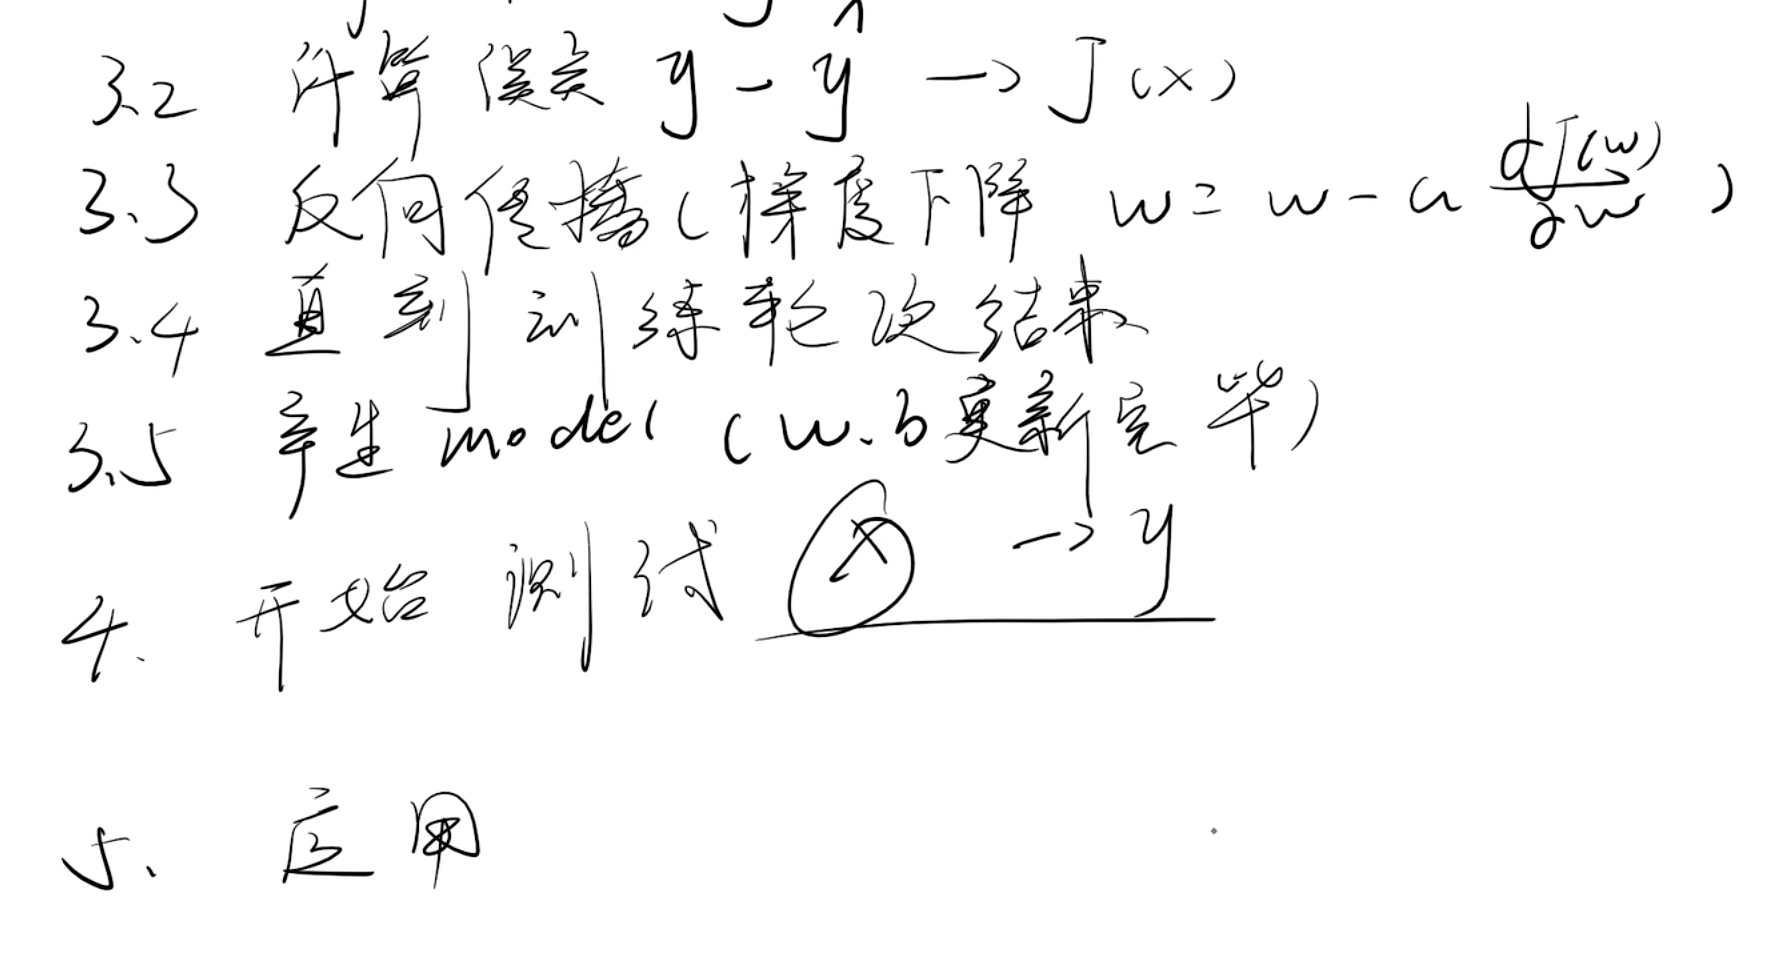 3.2 计算误差 y - ŷ → J(x)
3.3 反向传播(梯度下降 w = w - a dJ(w)/dw )
3.4 直到训练轮次结果
3.5 产生 model (w.b更新完毕)
4. 开始 测试 x → y
5、 应用